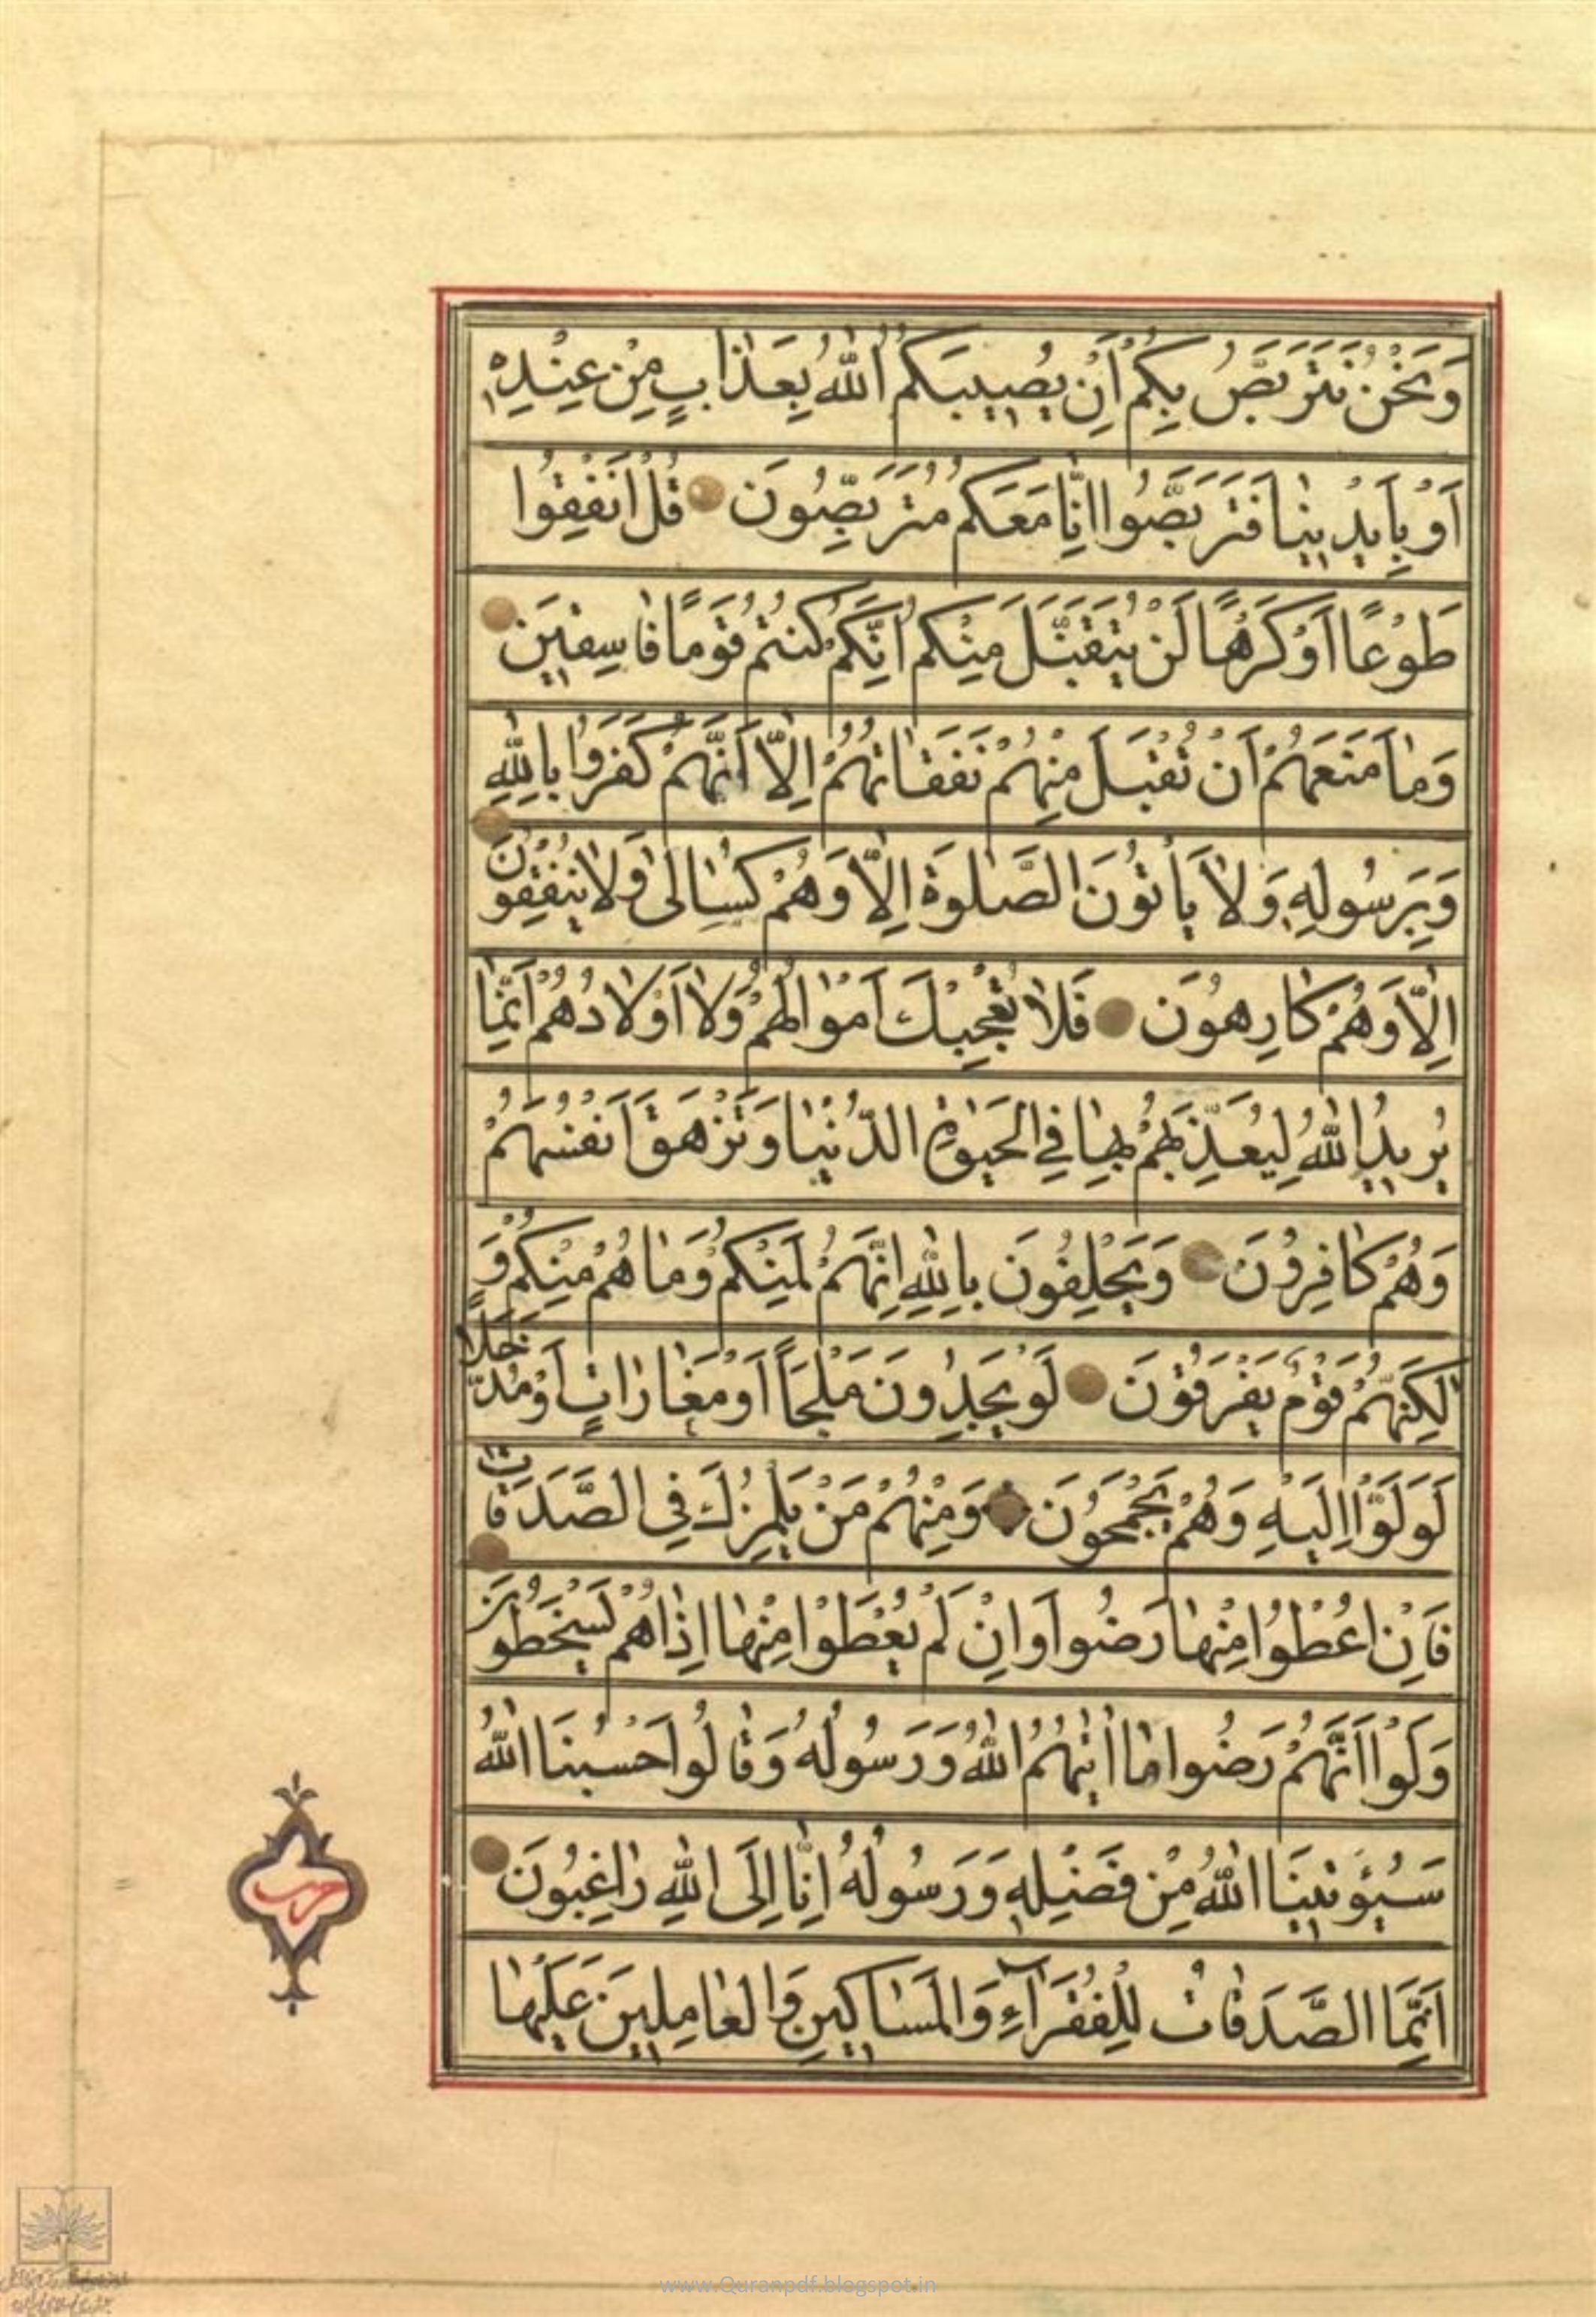 وَنَحْنُ نَتَرَبَّصُ بِكُمْ اَنْ يُصِيبَكُمُ اللّٰهُ بِعَذَابٍ مِنْ عِنْدِهٖ
اَوْ بِاَيْدِينَا فَتَرَبَّصُوا اِنَّا مَعَكُمْ مُتَرَبِّصُونَ قُلْ اَنْفِقُوا
طَوْعًا اَوْ كَرْهًا لَنْ يُتَقَبَّلَ مِنْكُمْ اِنَّكُمْ كُنْتُمْ قَوْمًا فَاسِقِينَ
وَمَا مَنَعَهُمْ اَنْ تُقْبَلَ مِنْهُمْ نَفَقَاتُهُمْ اِلَّا اَنَّهُمْ كَفَرُوا بِاللّٰهِ
وَبِرَسُولِهٖ وَلَا يَأْتُونَ الصَّلٰوةَ اِلَّا وَهُمْ كُسَالٰى وَلَا يُنْفِقُونَ
اِلَّا وَهُمْ كَارِهُونَ فَلَا تُعْجِبْكَ اَمْوَالُهُمْ وَلَا اَوْلَادُهُمْ اِنَّمَا
يُرِيدُ اللّٰهُ لِيُعَذِّبَهُمْ بِهَا فِي الْحَيٰوةِ الدُّنْيَا وَتَزْهَقَ اَنْفُسُهُمْ
وَهُمْ كَافِرُونَ وَيَحْلِفُونَ بِاللّٰهِ اِنَّهُمْ لَمِنْكُمْ وَمَا هُمْ مِنْكُمْ وَ
لٰكِنَّهُمْ قَوْمٌ يَفْرَقُونَ لَوْ يَجِدُونَ مَلْجَاً اَوْ مَغَارَاتٍ اَوْ مُدَّخَلًا
لَوَلَّوْا اِلَيْهِ وَهُمْ يَجْمَحُونَ وَمِنْهُمْ مَنْ يَلْمِزُكَ فِي الصَّدَقَاتِ
فَاِنْ اُعْطُوا مِنْهَا رَضُوا وَاِنْ لَمْ يُعْطَوْا مِنْهَا اِذَا هُمْ يَسْخَطُونَ
وَلَوْ اَنَّهُمْ رَضُوا مَا اٰتٰيهُمُ اللّٰهُ وَرَسُولُهُ وَقَالُوا حَسْبُنَا اللّٰهُ
سَيُؤْتِينَا اللّٰهُ مِنْ فَضْلِهٖ وَرَسُولُهُ اِنَّا اِلَى اللّٰهِ رَاغِبُونَ
اِنَّمَا الصَّدَقَاتُ لِلْفُقَرَآءِ وَالْمَسَاكِينِ وَالْعَامِلِينَ عَلَيْهَا
حزب
www.Quranpdf.blogspot.in